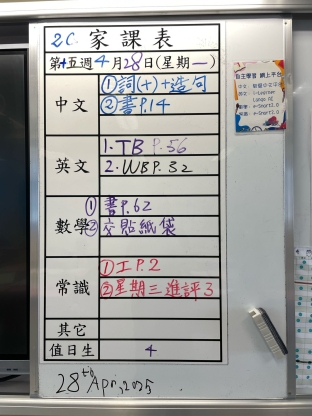 2C. 家課表
第十五週4月28日(星期一)
中文
①詞(十)+造句
②書P.14
英文
1.TB P.56
2.WBP.32
數學
①書P.62
②交貼紙袋
常識
①工P.2
②星期三進評3
其它
值日生 4
28th April, 2025
自主學習 網上平台